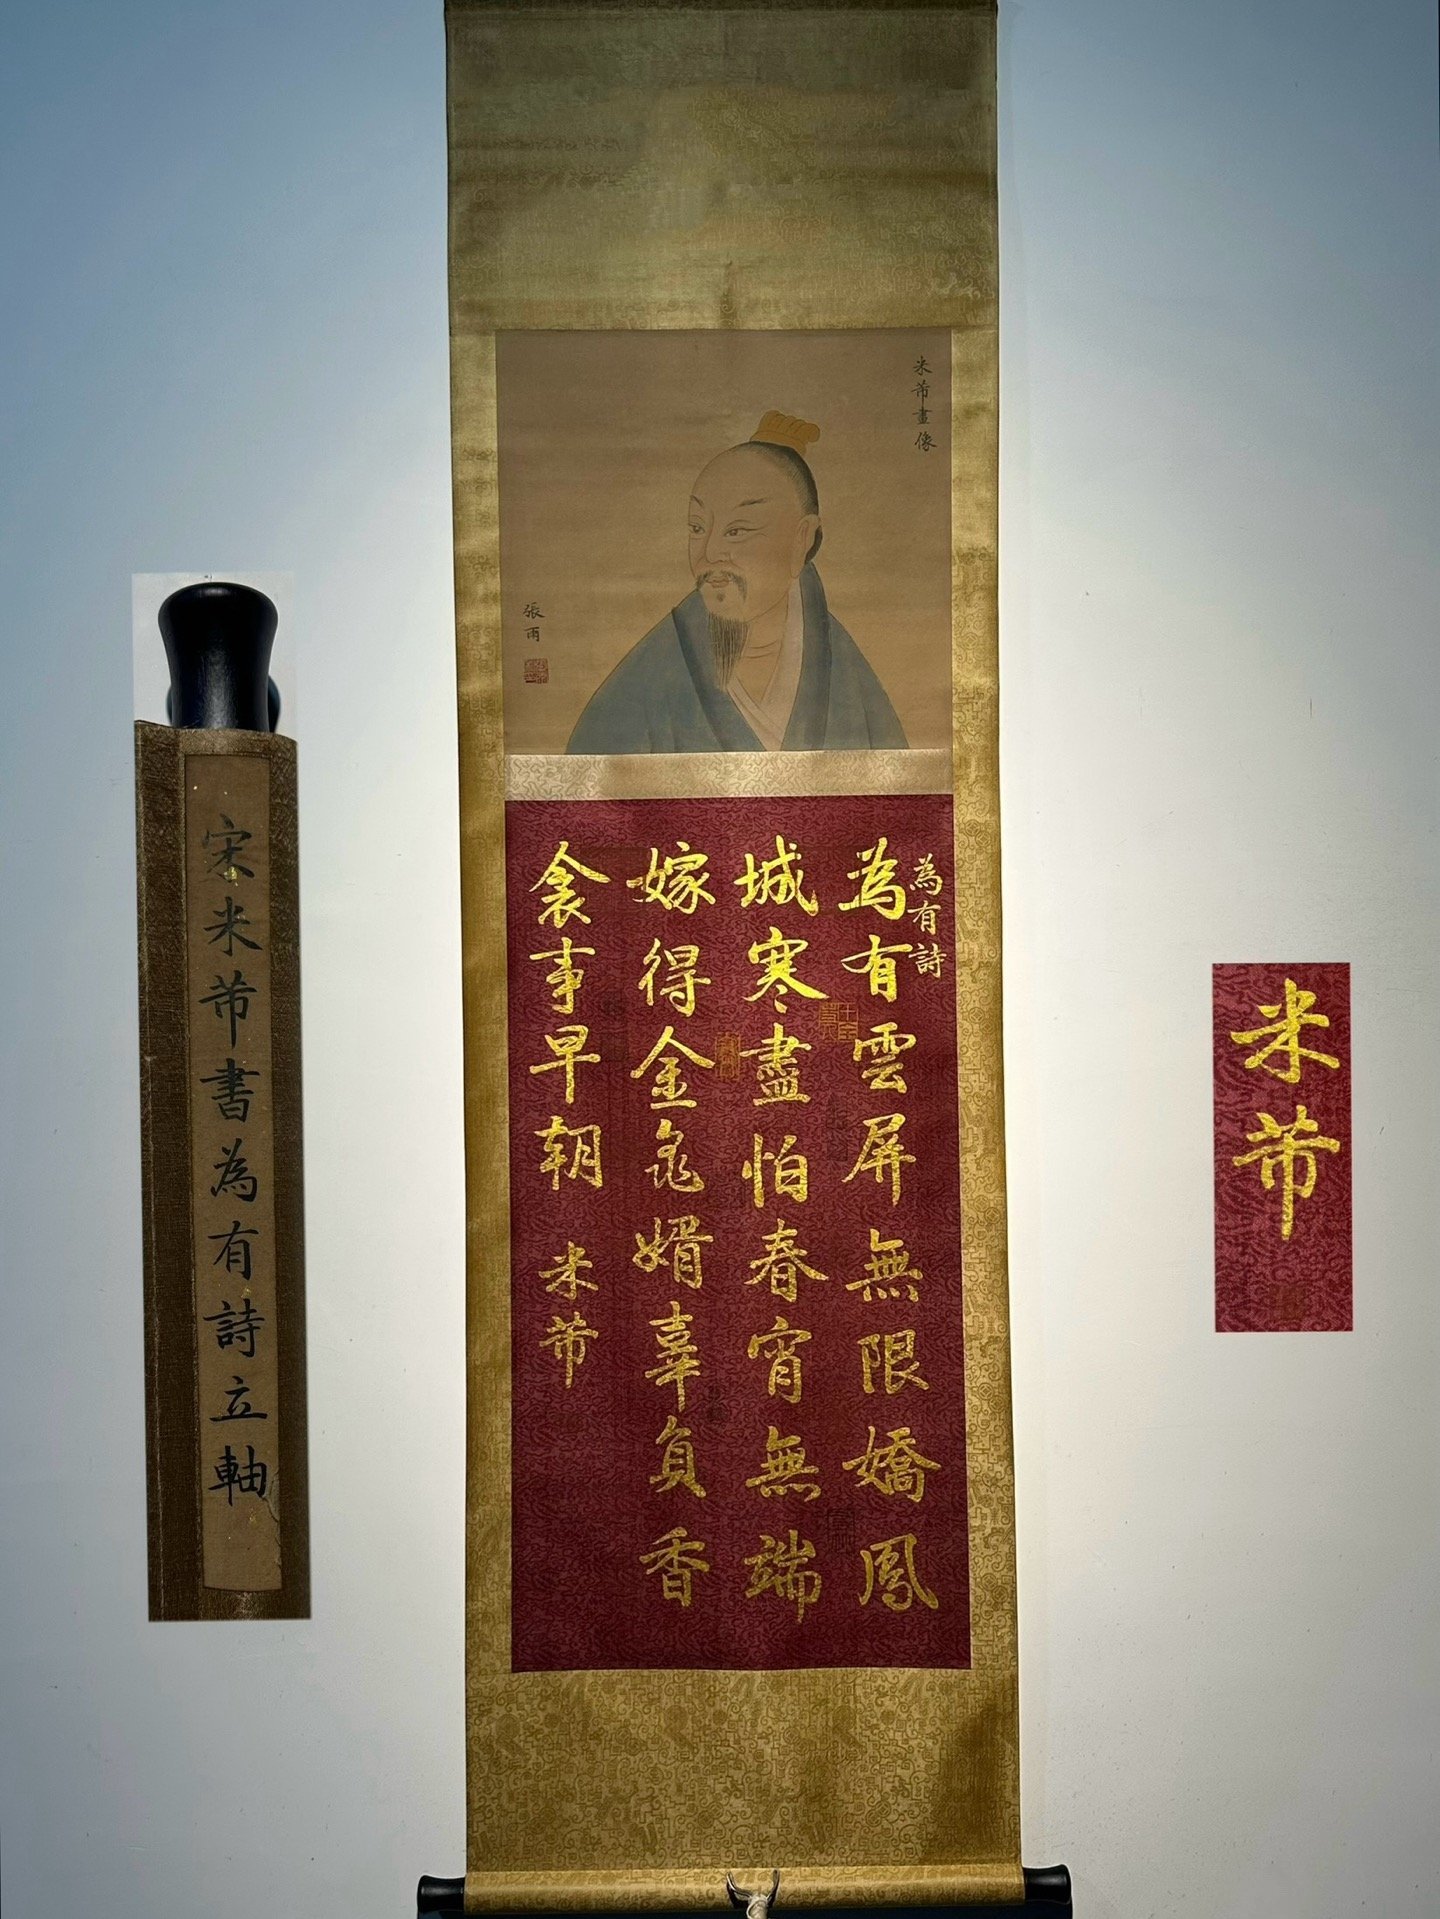 米芾畫像
張雨
為有詩
為有雲屏無限嬌鳳
城寒盡怕春宵無端
嫁得金龜婿辜負香
衾事早朝 米芾
宋米芾書為有詩立軸
米芾